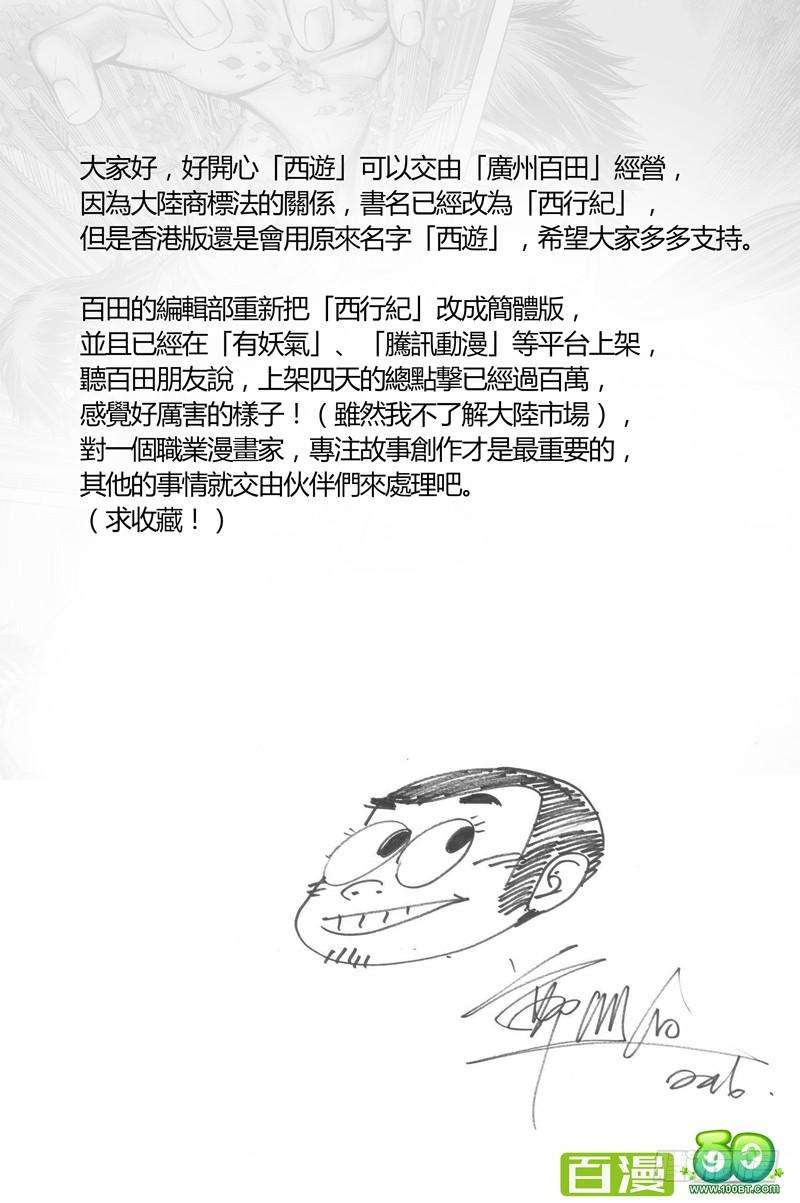 大家好，好開心「西遊」可以交由「廣州百田」經營，
因為大陸商標法的關係，書名已經改為「西行紀」，
但是香港版還是會用原來名字「西遊」，希望大家多多支持。
百田的編輯部重新把「西行紀」改成簡體版，
並且已經在「有妖氣」、「騰訊動漫」等平台上架，
聽百田朋友說，上架四天的總點擊已經過百萬，
感覺好厲害的樣子！（雖然我不了解大陸市場），
對一個職業漫畫家，專注故事創作才是最重要的，
其他的事情就交由伙伴們來處理吧。
（求收藏！）
百漫
WWW.100BT.COM